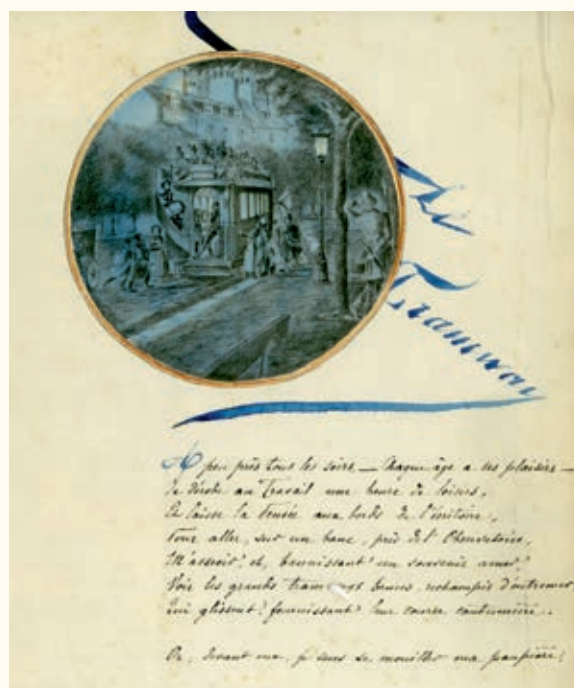 Le
Tramway
A peu près tous les soirs, — Chaque âge a ses plaisirs —
Je dérobe au Travail une heure de loisirs,
Et laisse la Pensée aux bords de l'écritoire,
Pour aller, sur un banc, près de l'Observatoire,
M'asseoir! et, bannissant un souvenir amer!
Voir les grands tramways rechampis d'outremer
Qui glissent! fournissant leur course coutumière..
Or, devant eux, je sens se mouiller ma paupière!